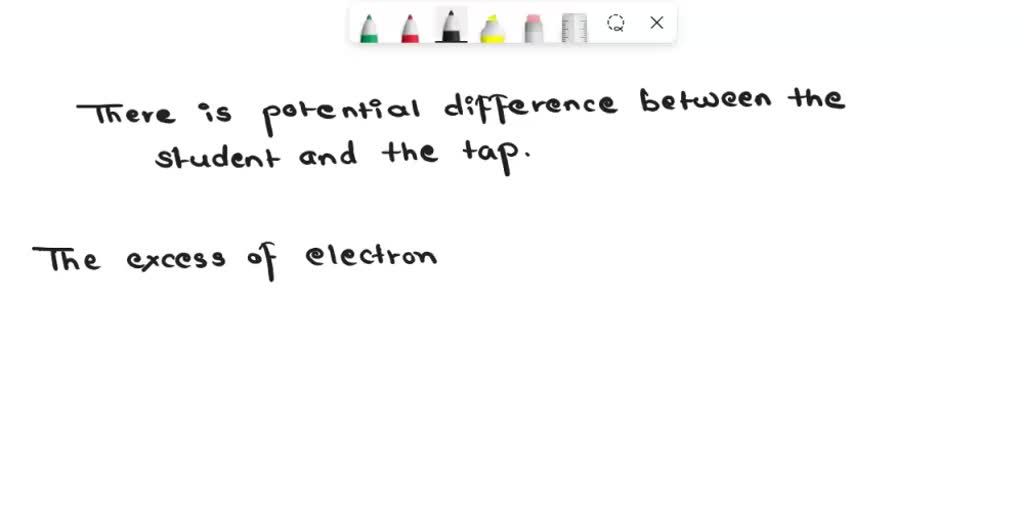 There is potential difference between the
student and the tap.
The excess of electron